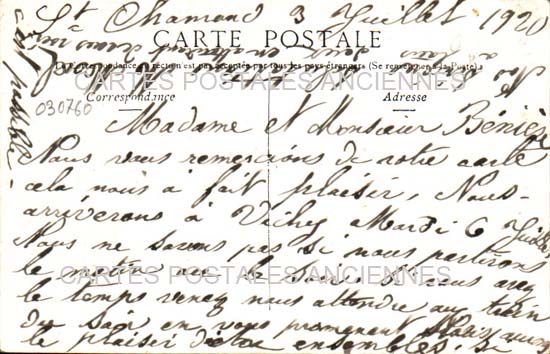 St Chamond 3 Juillet 1920
CARTE POSTALE
La Correspondance au recto n'est pas acceptée par tous les pays étrangers (Se renseigner à la Poste)
CARTES POSTALES ANCIENNES
Correspondance
Adresse
030760
Madame et Monsieur Bénier
Nous vous remercions de votre carte
cela nous à fait plaisir, Nous
arriverons à Vichy Mardi 6 Juillet
Nous ne savons pas si nous partirons
le matin ou le soir si vous avez
CARTES POSTALES ANCIENNES
le temps venez nous attendre au train
du soir en vous promenant
le plaisir d'être ensembles.